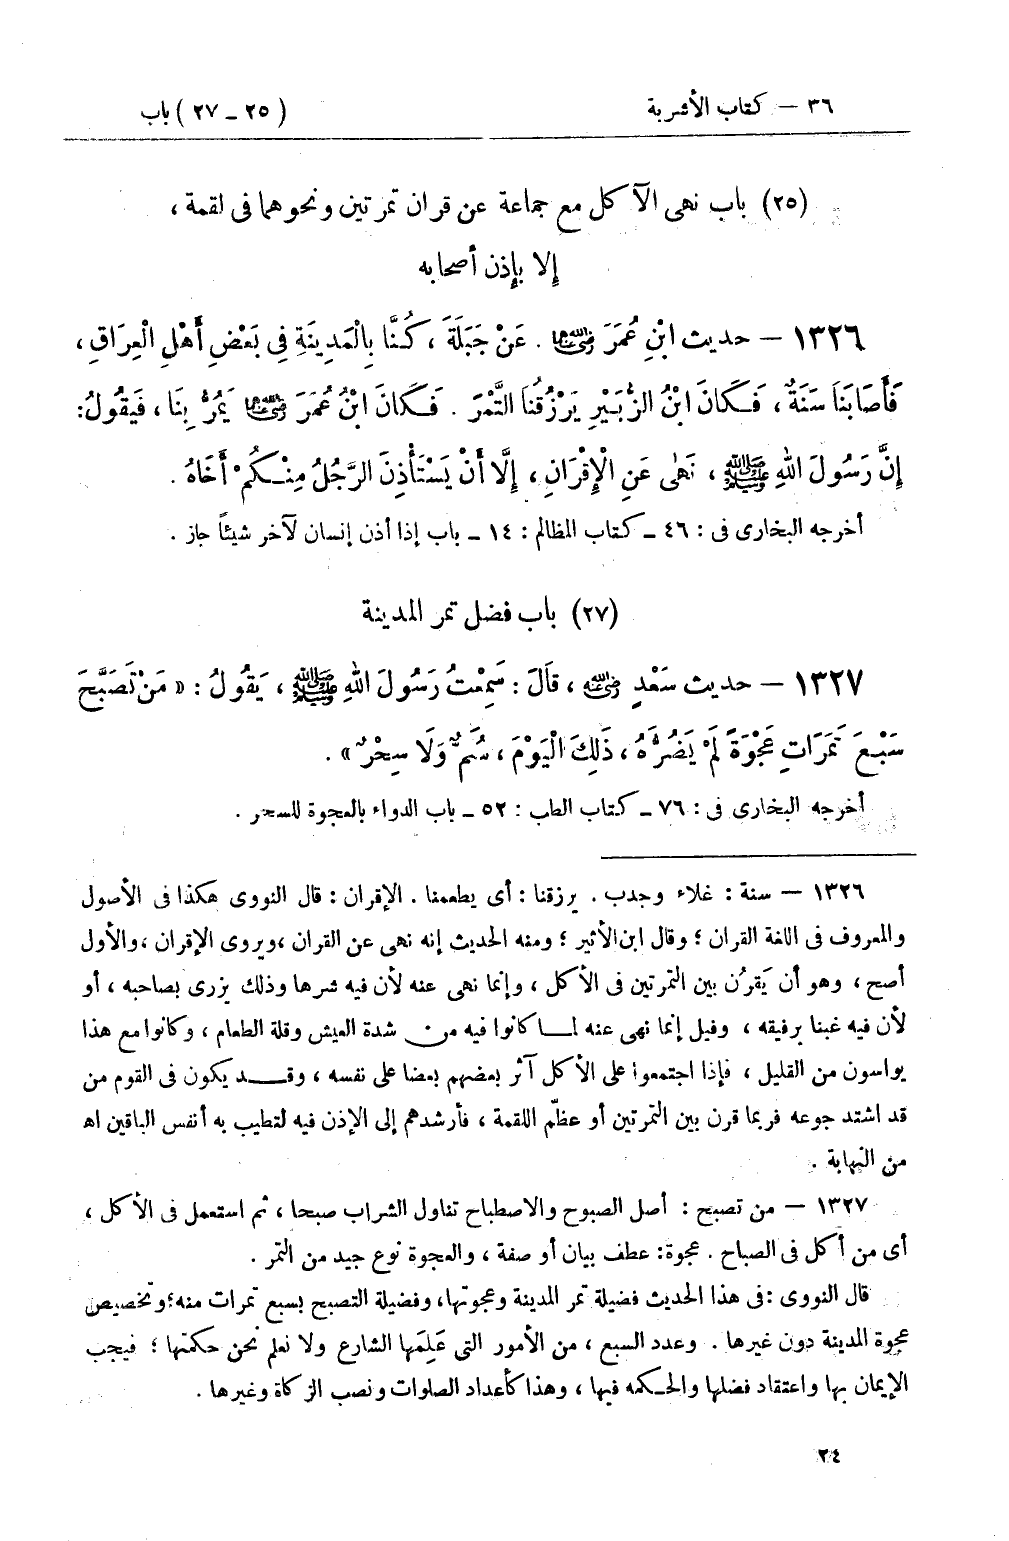 ٣٦ — كتاب الأشربة
(٢٥ ـ ٢٧) باب
(٢٥) باب نهى الآكل مع جماعة عن قران تمرتين ونحوهما فى لقمة ،
إلا بإذن أصحابه
١٣٢٦ — حديث ابْنِ عُمَرَ رضي الله عنهما . عَنْ جَبَلَةَ ، كُنَّا بِالْمَدِينَةِ فِى بَعْضِ أَهْلِ الْعِرَاقِ ،
فَأَصَابَنَا سَنَةٌ ، فَكَانَ ابْنُ الزُّبَيْرِ يَرْزُقُنَا التَّمْرَ . فَكَانَ ابْنُ عُمَرَ رضي الله عنهما يَمُرُّ بِنَا ، فَيَقُولُ :
إِنَّ رَسُولَ اللهِ ﷺ ، نَهٰى عَنِ الْإِقْرَانِ ، إِلَّا أَنْ يَسْتَأْذِنَ الرَّجُلُ مِنْكُمْ أَخَاهُ .
أخرجه البخارى فى : ٤٦ ـ كتاب المظالم : ١٤ ـ باب إذا أذن إنسان لآخر شيئاً جاز .
(٢٧) باب فضل تمر المدينة
١٣٢٧ — حديث سَعْدٍ رضي الله عنه ، قَالَ : سَمِعْتُ رَسُولَ اللهِ ﷺ ، يَقُولُ : « مَنْ تَصَبَّحَ
سَبْعَ تَمَرَاتِ عَجْوَةً لَمْ يَضُرَّهُ ، ذَلِكَ الْيَوْمَ ، سَُمٌّ وَلَا سِحْرٌ » .
أخرجه البخارى فى : ٧٦ ـ كتاب الطب : ٥٢ ـ باب الدواء بالعجوة للسحر .
١٣٢٦ — سنة : غلاء وجدب . يرزقنا : أى يطعمنا . الإقران : قال النووى هكذا فى الأصول
والمعروف فى اللغة القران ؛ وقال ابن الأثير ؛ ومنه الحديث إنه نهى عن القران ، ويروى الإقران ، والأول
أصح ، وهو أن يَقرُن بين التمرتين فى الأكل ، وإنما نهى عنه لأن فيه شرها وذلك يزرى بصاحبه ، أو
لأن فيه غبنا برفيقه ، وقيل إنما نهى عنه لما كانوا فيه من شدة العيش وقلة الطعام ، وكانوا مع هذا
يواسون من القليل ، فإذا اجتمعوا على الأكل آثر بعضهم بعضا على نفسه ، وقد يكون فى القوم من
قد اشتد جوعه فربما قرن بين التمرتين أو عظّم اللقمة ، فأرشدهم إلى الإذن فيه لتطيب به أنفس الباقين اه
من النهاية .
١٣٢٧ — من تصبح : أصل الصبوح والاصطباح تناول الشراب صبحا ، ثم استعمل فى الأكل ،
أى من أكل فى الصباح . عجوة : عطف بيان أو صفة ، والعجوة نوع جيد من التمر .
قال النووى : فى هذا الحديث فضيلة تمر المدينة وعجوتها ، وفضيلة التصبح بسبع تمرات منه ؛ وتخصيص
عجوة المدينة دون غيرها . وعدد السبع ، من الأمور التى عَلِمَها الشارع ولا نعلم نحن حكمتها ؛ فيجب
الإيمان بها واعتقاد فضلها والحكمه فيها ، وهذا كأعداد الصلوات ونصب الزكاة وغيرها .
٣٤